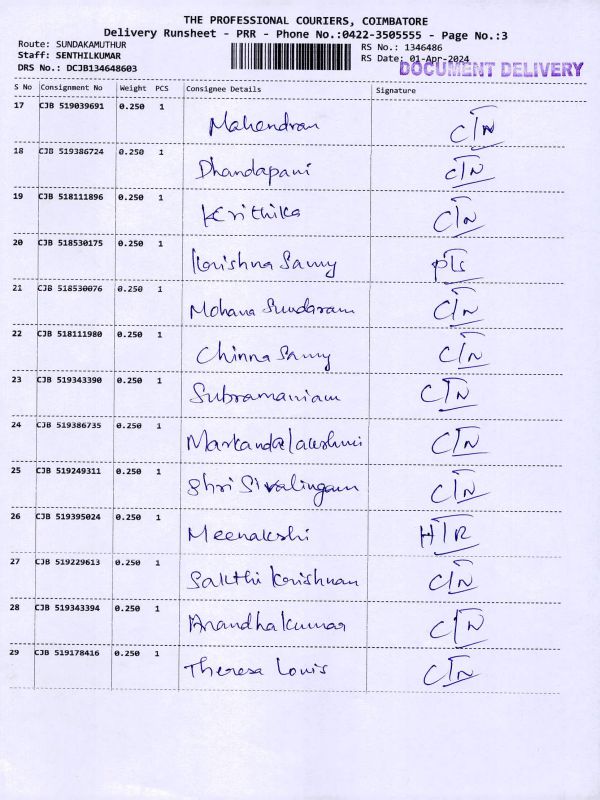 THE PROFESSIONAL COURIERS, COIMBATORE
Delivery Runsheet - PRR - Phone No.:0422-3505555 - Page No.:3
Route: SUNDAKAMUTHUR RS No.: 1346486
Staff: SENTHILKUMAR RS Date: 01-Apr-2024
DOCUMENT DELIVERY
DRS No.: DCJB134648603
S No Consignment No Weight PCS Consignee Details Signature
17 CJB 519039691 0.250 1 Mahendran CTN
18 CJB 519386724 0.250 1 Dhandapani CTN
19 CJB 518111896 0.250 1 Kerithika CTN
20 CJB 518530175 0.250 1 Krishna Samy pls
21 CJB 518530076 0.250 1 Mohana Sundaram CTN
22 CJB 518111980 0.250 1 Chinna Samy CTN
23 CJB 519343390 0.250 1 Subramaniam CTN
24 CJB 519386735 0.250 1 Markandalakshmi CTN
25 CJB 519249311 0.250 1 Shri Sivalingam CTN
26 CJB 519395024 0.250 1 Meenakshi HTR
27 CJB 519229613 0.250 1 Sakthi Krishnan CTN
28 CJB 519343394 0.250 1 Anandhakumar CTN
29 CJB 519178416 0.250 1 Theresa Louis CTN